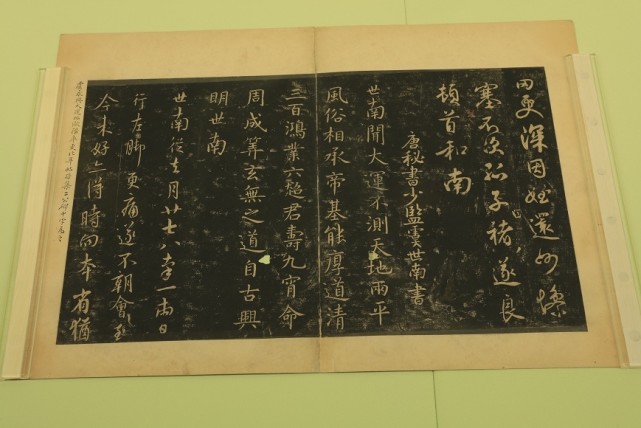 田更深因姪還州慘
塞不次孤子褚遂良
頓首和南
唐秘書少監虞世南書
世南聞大運不測天地兩平
風俗相承帝基能厚道清
三百鴻業六超君壽九霄命
周成筭玄無之道自古興
明世南
世南從去月廿七八率一兩日
行左脚更痛遂不朝會至
今未好亦得時向本省猶